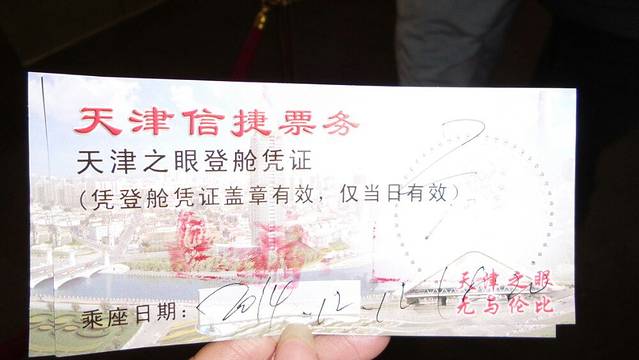 天津信捷票务
天津之眼登舱凭证
(凭登舱凭证盖章有效，仅当日有效)
天津之眼
无与伦比
乘座日期：2014.12.12